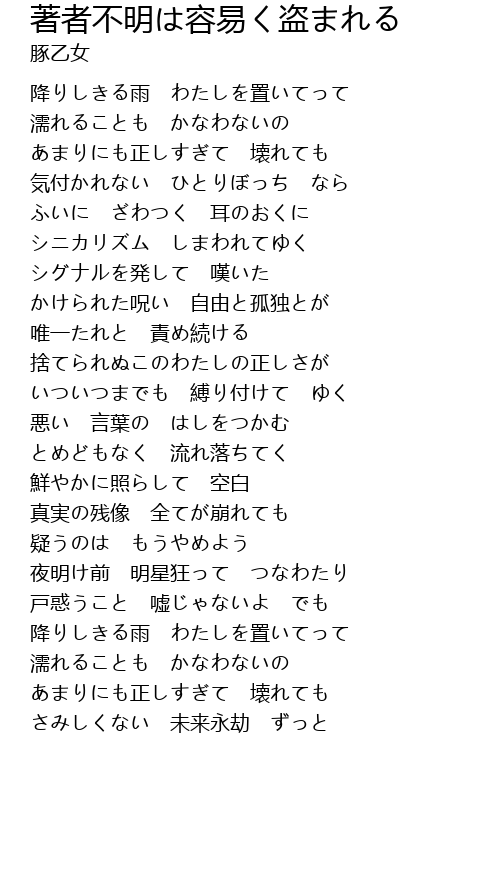 著者不明は容易く盗まれる
豚乙女
降りしきる雨　わたしを置いてって
濡れることも　かなわないの
あまりにも正しすぎて　壊れても
気付かれない　ひとりぼっち　なら
ふいに　ざわつく　耳のおくに
シニカリズム　しまわれてゆく
シグナルを発して　嘆いた
かけられた呪い　自由と孤独とが
唯一たれと　責め続ける
捨てられぬこのわたしの正しさが
いついつまでも　縛り付けて　ゆく
悪い　言葉の　はしをつかむ
とめどもなく　流れ落ちてく
鮮やかに照らして　空白
真実の残像　全てが崩れても
疑うのは　もうやめよう
夜明け前　明星狂って　つなわたり
戸惑うこと　嘘じゃないよ　でも
降りしきる雨　わたしを置いてって
濡れることも　かなわないの
あまりにも正しすぎて　壊れても
さみしくない　未来永劫　ずっと